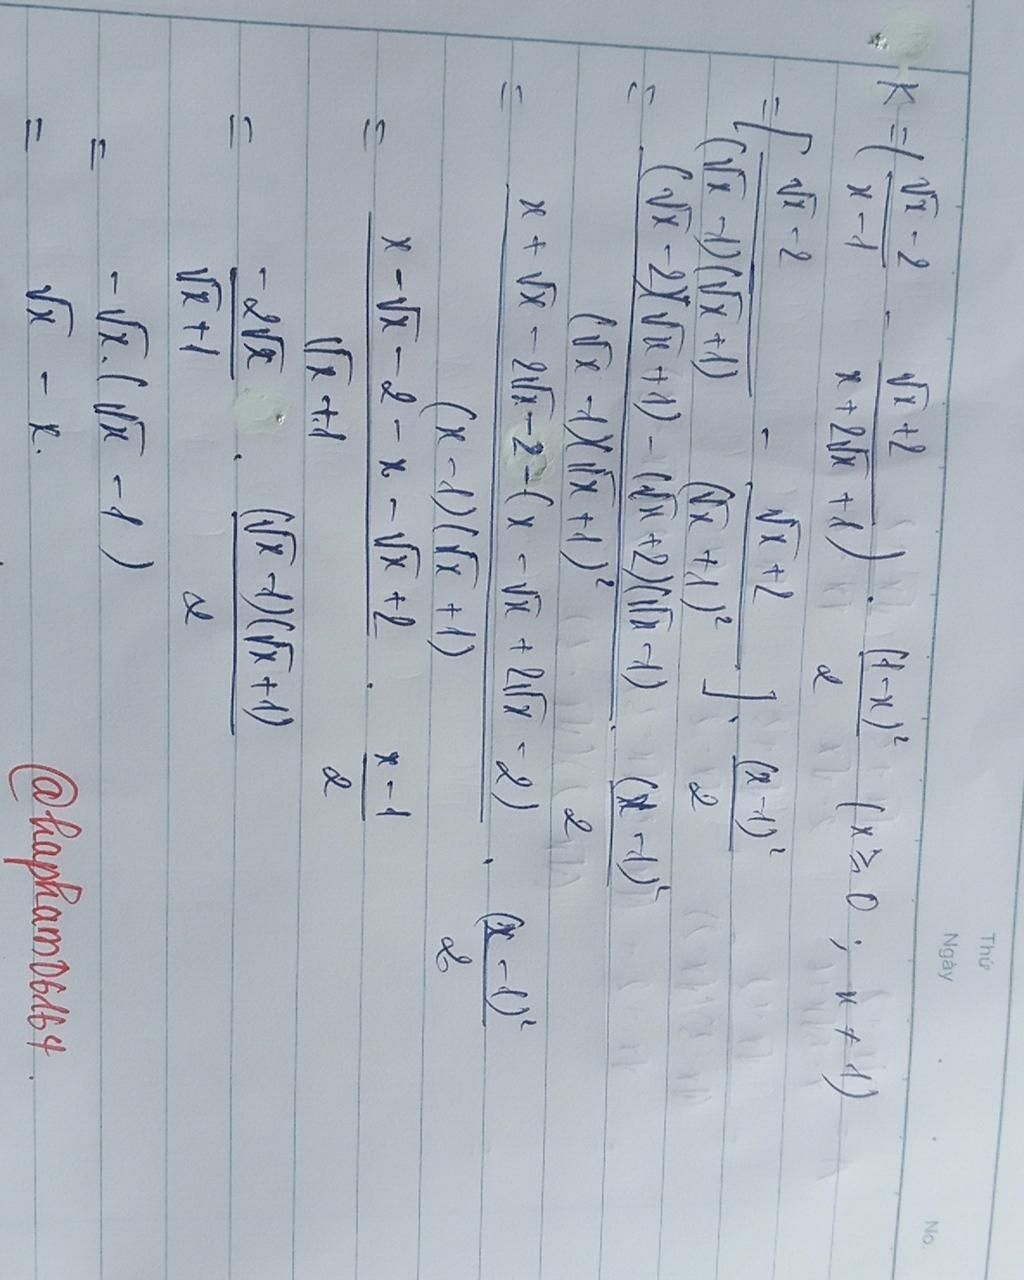 Thứ
Ngày No.
K = ( (√x - 2)/(x - 1) - (√x + 2)/(x + 2√x + 1) ) . (1 - x)²/2 (x ≥ 0 ; x ≠ 1)
= [ (√x - 2)/((√x - 1)(√x + 1)) - (√x + 2)/(√x + 1)² ] . (x - 1)²/2
= ((√x - 2)(√x + 1) - (√x + 2)(√x - 1))/((√x - 1)(√x + 1)²) . (x - 1)²/2
= (x + √x - 2√x - 2 - (x - √x + 2√x - 2))/((x - 1)(√x + 1)) . (x - 1)²/2
= (x - √x - 2 - x - √x + 2)/(√x + 1) . (x - 1)/2
= (-2√x)/(√x + 1) . ((√x - 1)(√x + 1))/2
= -√x . (√x - 1)
= √x - x.
@hapham06164.